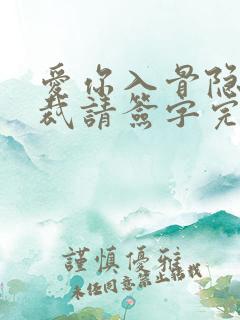 愛你入骨隐
裁請簽字完
謹慎優雅
未经同意禁止轉載